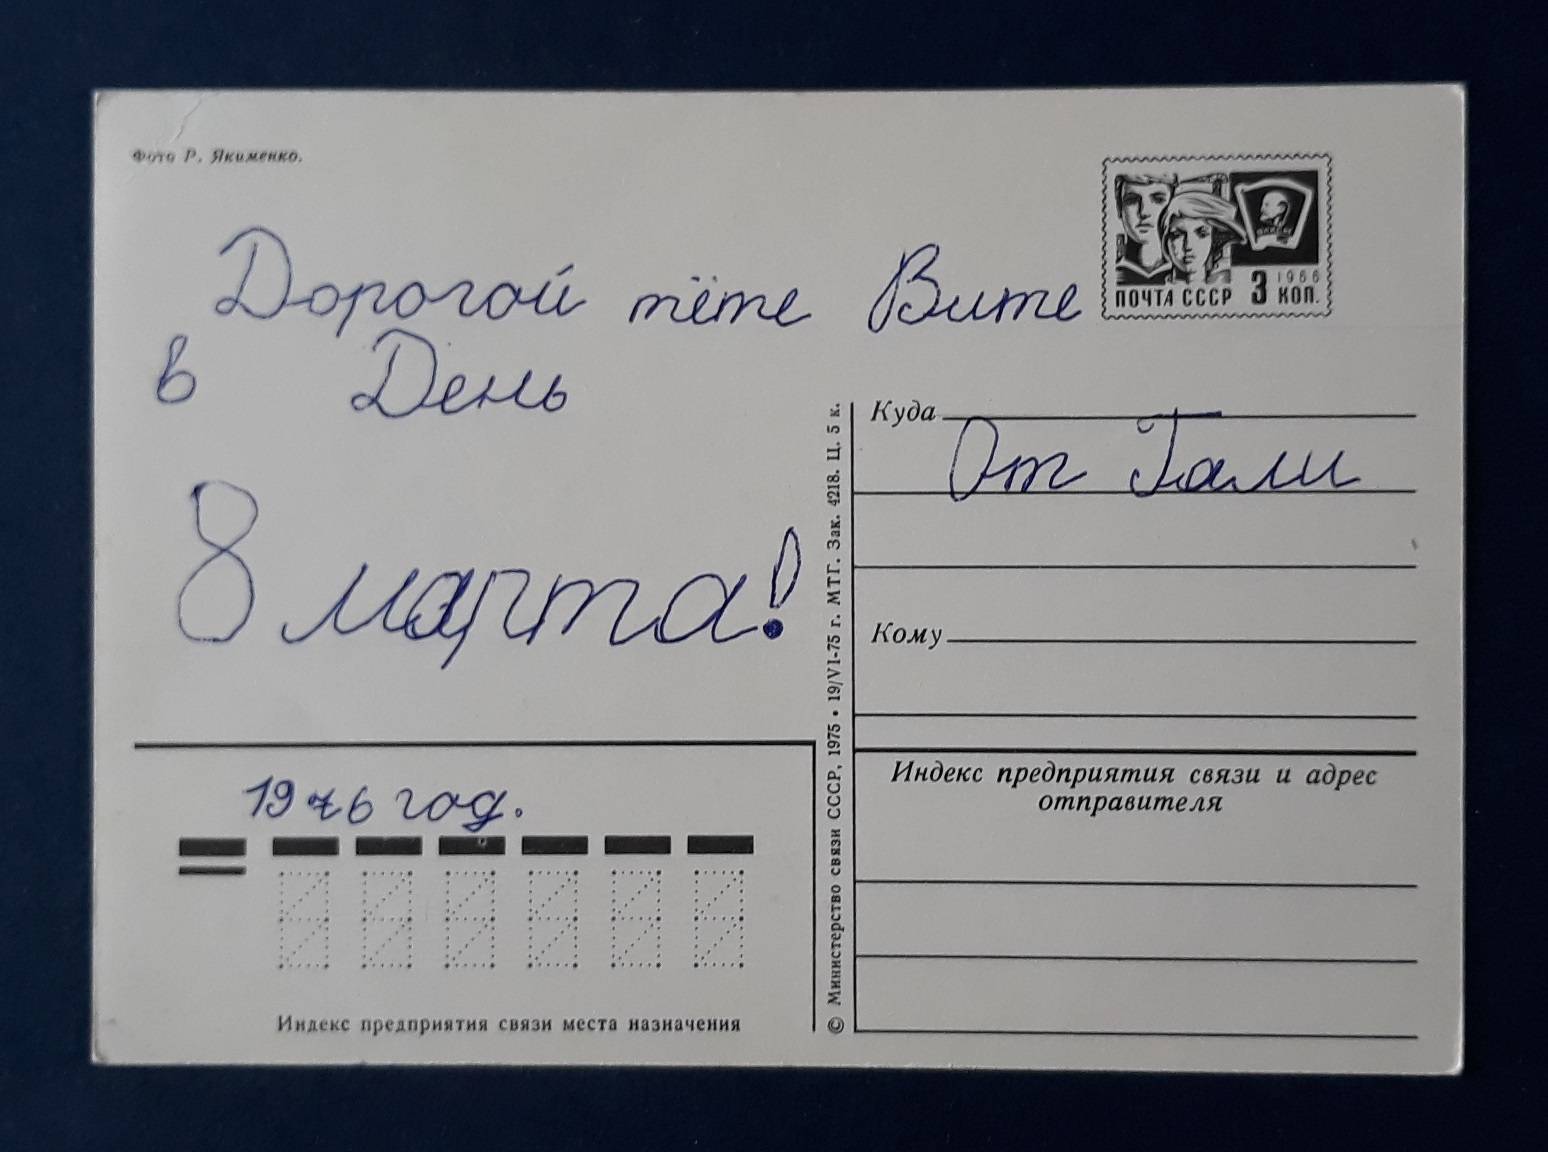 Фото Р. Якименко.
Дорогой тёте Вите
в День
8 марта!
1976 год.
Индекс предприятия связи места назначения
© Министерство связи СССР, 1975 • 19/VI-75 г. МТГ. Зак. 4218. Ц. 5 к.
1966
ПОЧТА СССР 3 КОП.
Куда
От Гали
Кому
Индекс предприятия связи и адрес
отправителя